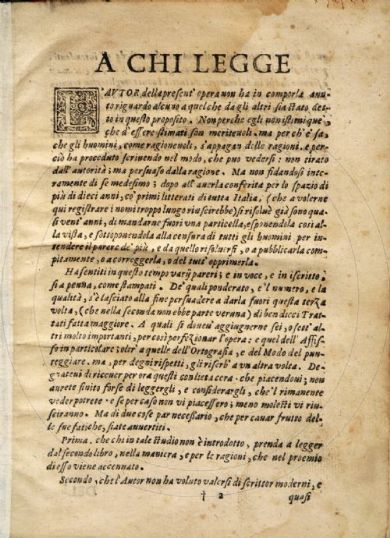 A CHI LEGGE
L'AVTOR della present' opera non ha in comporla auu-
to riguardo alcuno a quel che da gli altri sia stato det-
to in questo proposito. Non perche egli non istimi que',
che d'essere stimati son meriteuoli. ma perch' è sa,
che gli huomini, come ragioneuoli, s'appagan delle ragioni. e per-
ciò ha proceduto scriuendo nel modo, che può vedersi: non tirato
dall' autorità; ma persuaso dalla ragione. Ma non fidandosi inte-
ramente di se medesimo; dopo all' auerla conferita per lo spazio di
più di dieci anni, co' primi litterati di tutta Italia, (che a volerne
qui registrare i nomi troppo lungo riuscirebbe) si risoluè già sono qua-
si vent' anni, di mandarne fuori vna particella, esponendola così al-
la vista, e sottoponendola alla censura di tutti gli huomini per in-
tendere il parere de' più, e da quello risoluersi, o a pubblicarla com-
pitamente, o a correggerla, o del tutt' opprimerla.
Ha sentiti in questo tempo varij pareri; e in voce, e in iscritto.
si a penna, come stampati. De' quali ponderato, e'l numero, e la
qualità, s'è lasciato alla fine persuadere a darla fuori questa terza
volta, (che nella seconda non ebbe parte verana) di ben dieci Trat-
tati fatta maggiore. A quali si doueu' aggiugnerne sei, o sett' al-
tri molto importanti, per così perfezionar l'opera: e quel dell' Affis-
so in particolare; oltr' a quelle dell' Ortografia, e del Modo del pun-
teggiare. ma, per degni rispetti, gli riserb' a vn altra volta. De-
gnateui di riceuer per ora questi con lieta cera. che piacendoui; non
aurete finito forse di leggergli, e considerargli, che'l rimanente
veder potrete. e se per caso non vi piacessero; meno molesti vi riu-
sciranno. Ma di due cose par necessario, che per cauar frutto del-
le sue fatiche, siate auuertiti.
Prima. che chi in tale studio non è introdotto, prenda a legger
dal secondo libro, nella maniera, e per le ragioni, che nel proemio
di esso viene accennato.
Secondo, che l'Autor non ha voluto valersi di scrittor moderni, e
† 2 quasi